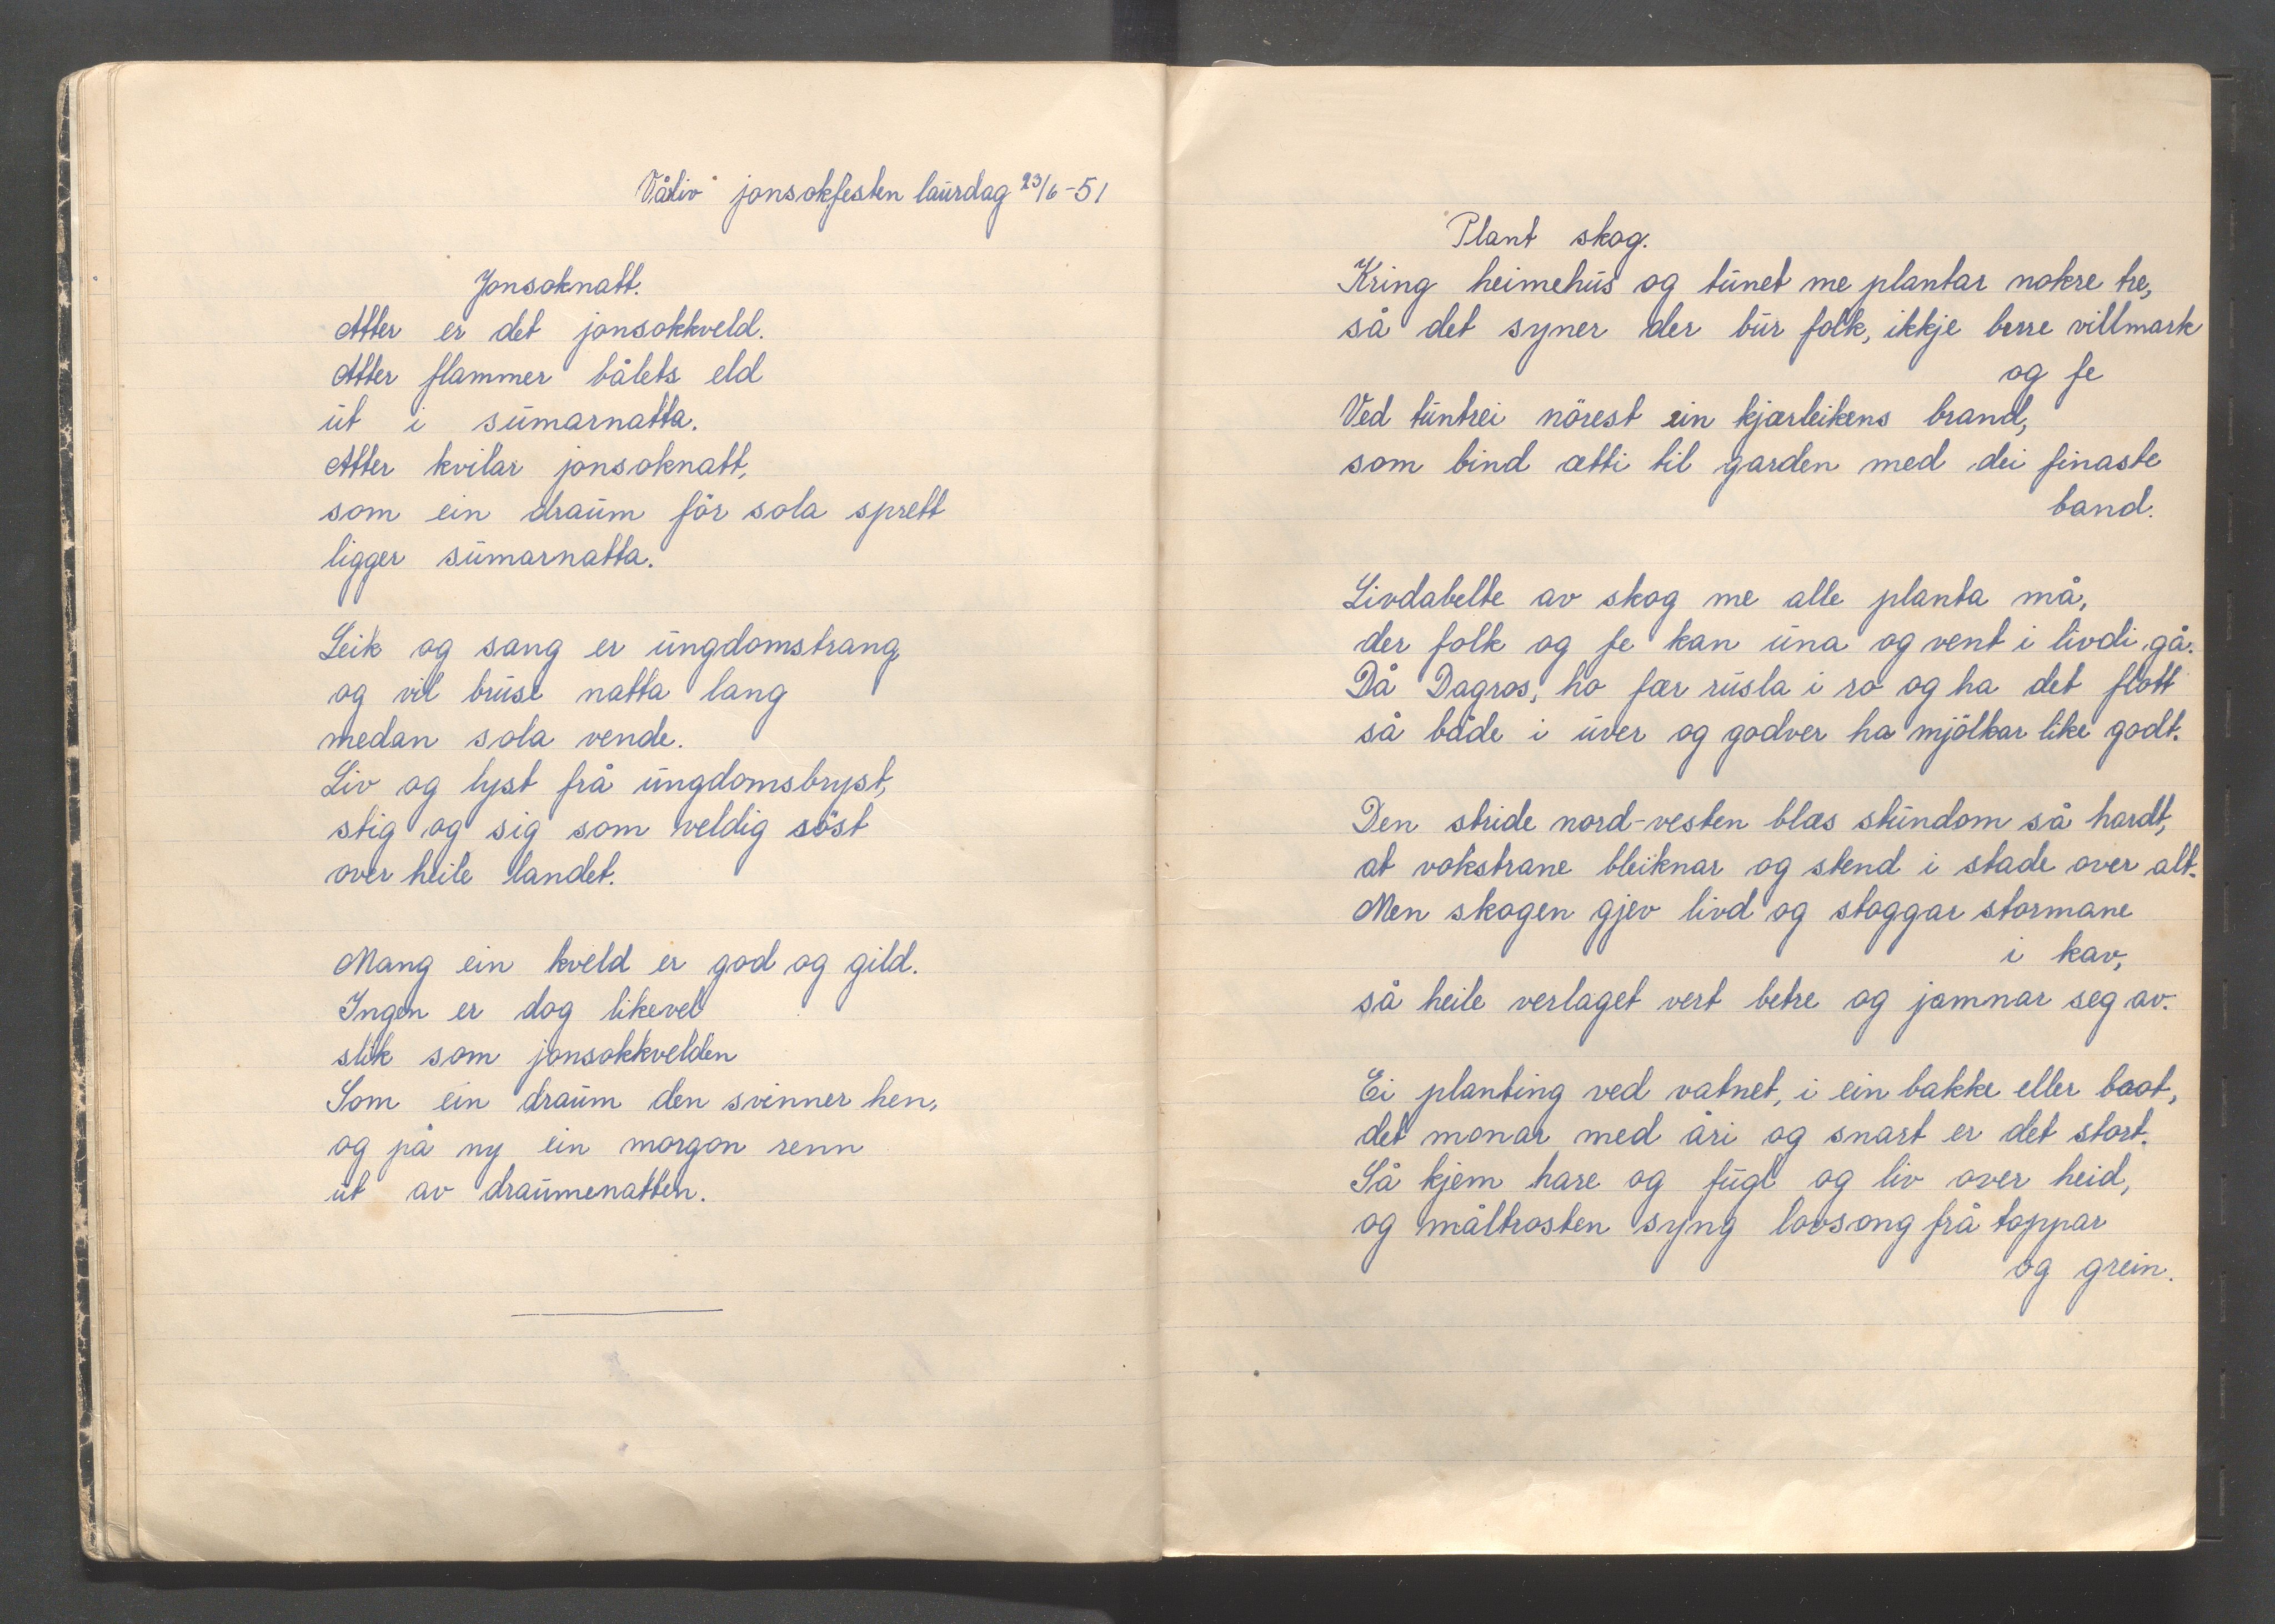 Vårliv" jonsokfesten laurdag 23/6-51
Jonsoknatt.
Atter er det jonsokkveld.
Atter flammer bålets eld
ut i sumarnatta.
Atter kvilar jonsoknatt,
som ein draum för sola sprett
ligger sumarnatta.
Leik og sang er ungdomstrang
og vil bruse natta lang
medan sola vende.
Liv og lyst frå ungdomsbryst,
stig og sig som veldig söst
over heile landet.
Mang ein kveld er god og gild.
Ingen er dog likevel
slik som jonsokkvelden
Som ein draum den svinner hen,
og på ny ein morgon renn
ut av draumenatten.
Plant skog.
Kring heimehus og tunet me plantar nokre tre,
så det syner der bur folk, ikkje berre villmark
og fe
Ved tuntrei nörest ein kjærleikens brand,
som bind ætti til garden med dei finaste
band.
Livdabelte av skog me alle planta må,
der folk og fe kan una og vent i livdi gå.
Då Dagros, ho fær rusla i ro og ha det flott
så både i uver og godver ho mjölkar like godt.
Den stride nord-vesten blæs stundom så hardt,
at vokstrane bleiknar og stend i stade over alt.
Men skogen gjev livd og stoggar stormane
i kav,
så heile verlaget vert betre og jamnar seg av.
Ei planting ved vatnet, i ein bakke eller boot,
det monar med åri og snart er det stort.
Så kjem hare og fugl og liv over heid,
og måltrosten syng lovsong frå toppar
og grein.